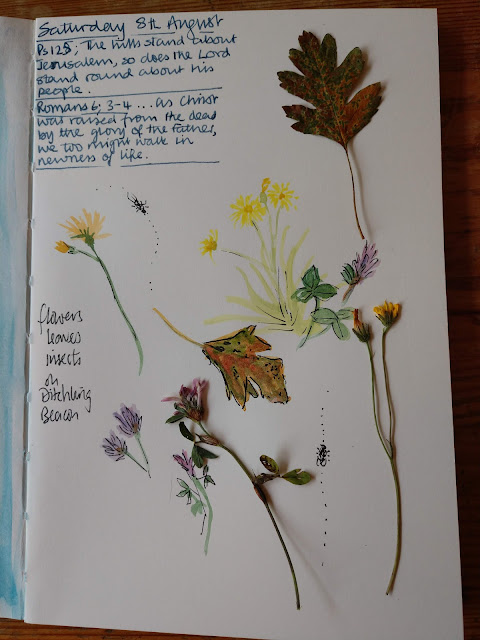 Saturday 8th August
Ps 125; The hills stand about
Jerusalem, so does the Lord
stand round about his
people.
Romans 6, 3-4 ... as Christ
was raised from the dead
by the glory of the Father,
we too might walk in
newness of life.
flowers
leaves
insects
on
Ditchling
Beacon